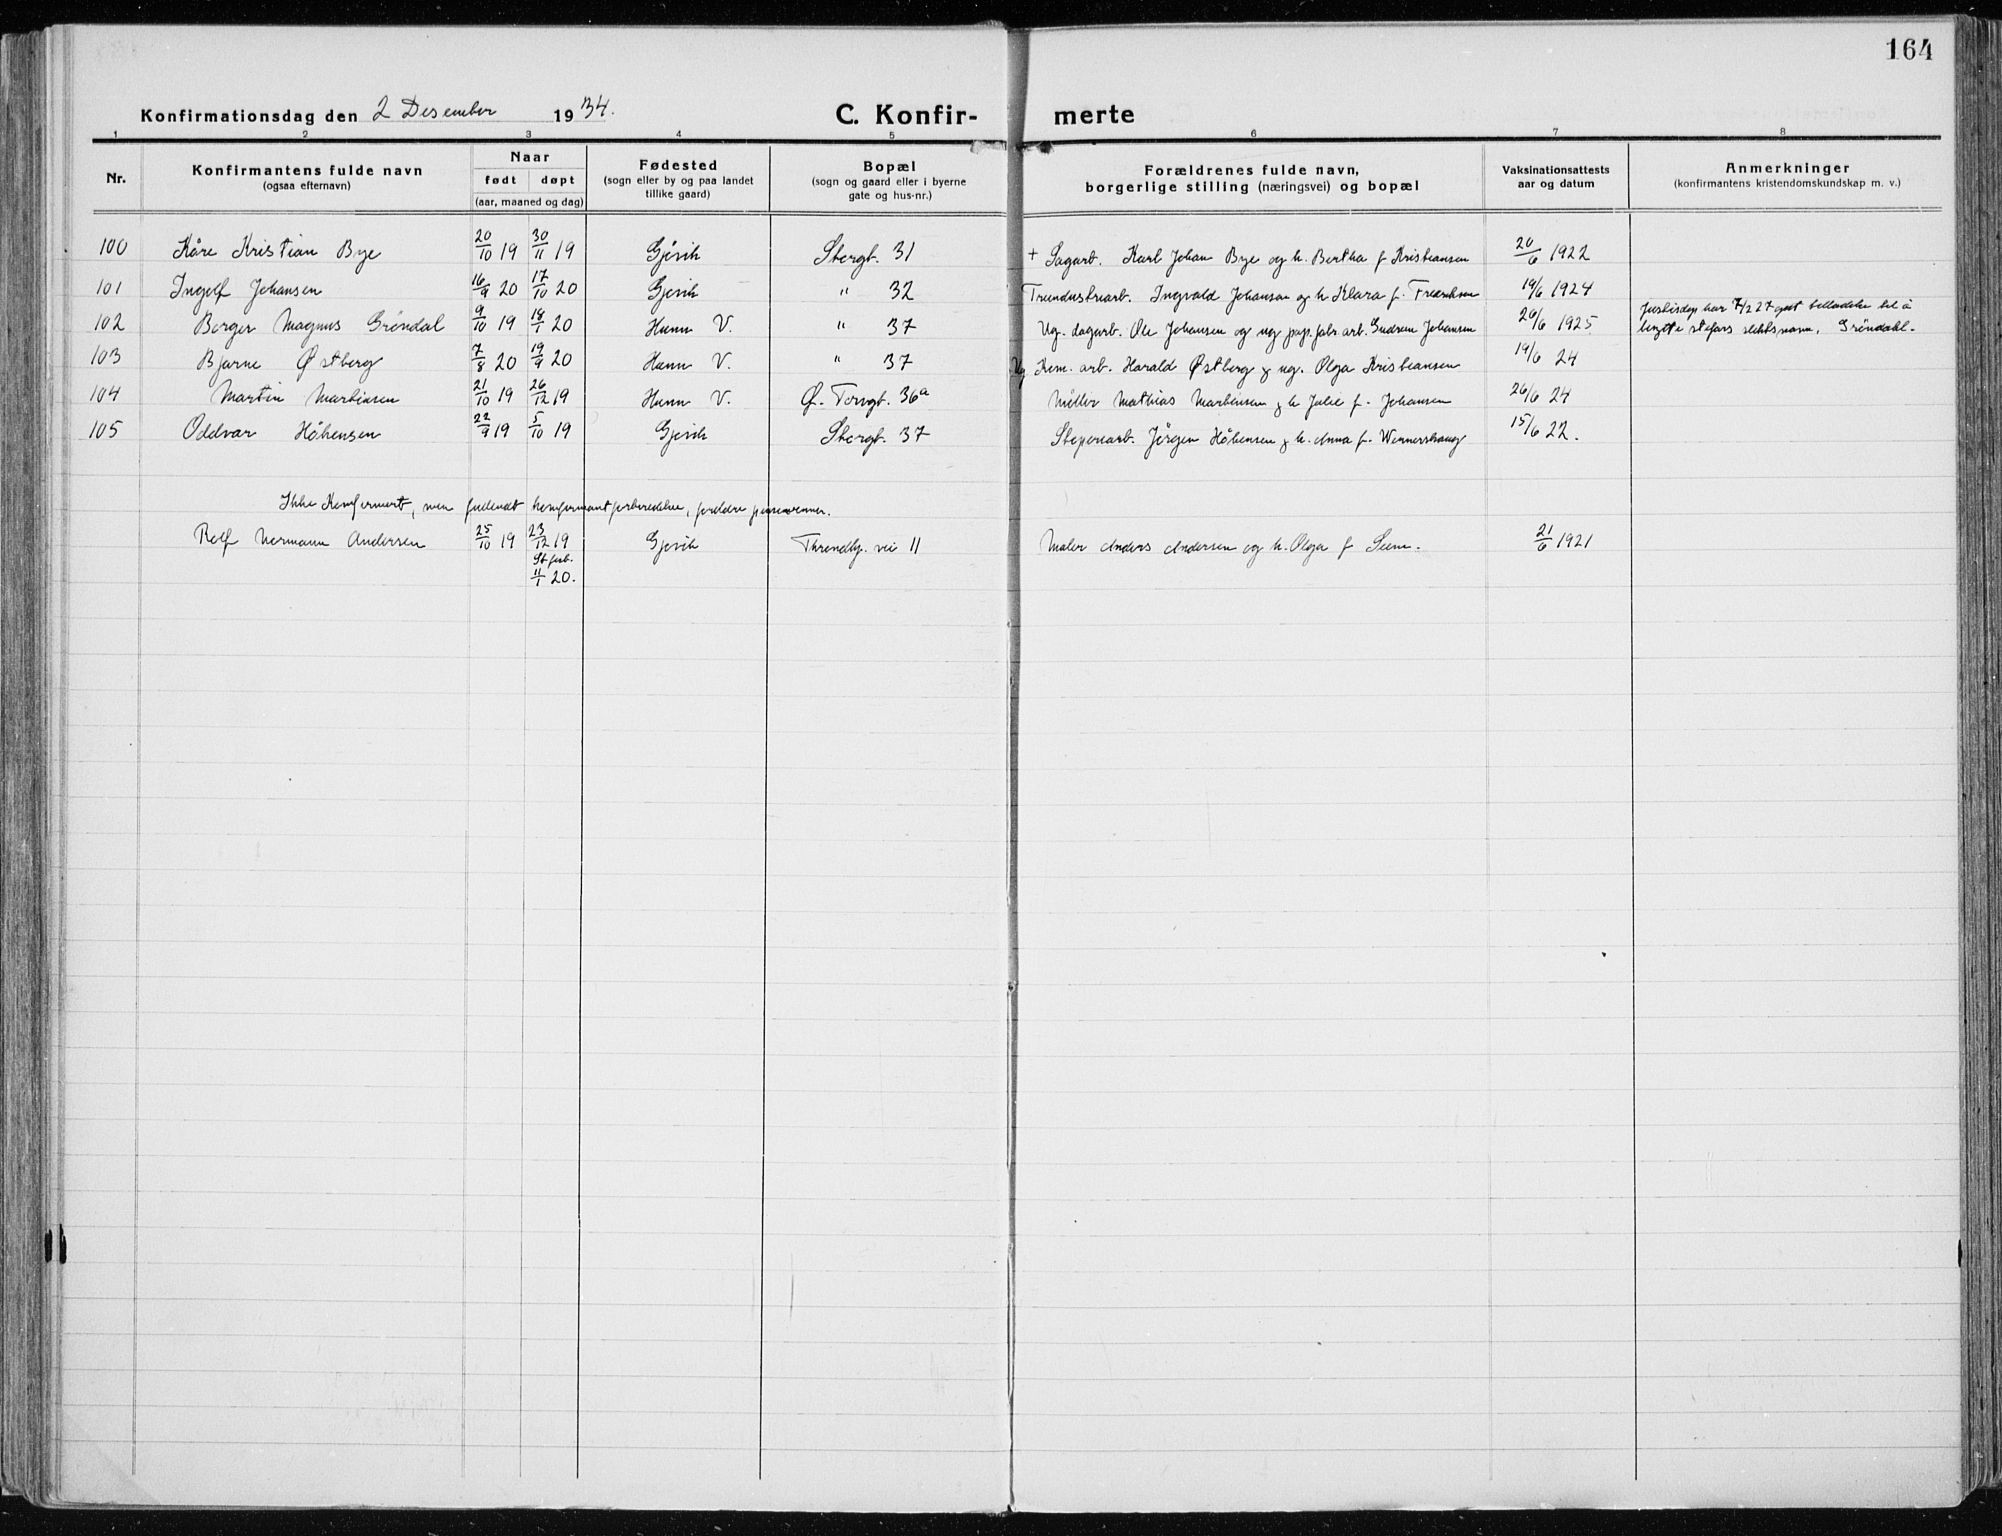 164
Konfirmationsdag den 2 Desember 1934. C. Konfir- merte
1 2 3 4 5 6 7 8
Nr. Konfirmantens fulde navn (ogsaa efternavn) Naar født døpt (aar, maaned og dag) Fødested (sogn eller by og paa landet tillike gaard) Bopæl (sogn og gaard eller i byerne gate og hus-nr.) Forældrenes fulde navn, borgerlige stilling (næringsvei) og bopæl Vaksinationsattests aar og datum Anmerkninger (konfirmantens kristendomskundskap m. v.)
100 Kåre Kristian Bye 20/10 19 30/11 19 Gjøvik Storgt. 31 + Sagarb. Karl Johan Bye og h. Bertha f. Kristiansen 20/6 1922
101 Ingolf Johansen 16/9 20 17/10 20 Gjøvik " 32 Ingvald Johansen og h Klara f. Fredriksen 19/6 1924
102 Borger Magnus Gröndal 9/10 19 18/1 20 Hunn V. " 37 Ug. dagarb. Ole Johansen og ug pap.fabr.arb. Gudrun Johansen 26/6 1925 Justisdep har 7/2 27 gitt tilladelse til å
benytte stefars slektsnavn, Gröndahl.
103 Bjarne Østberg 7/8 20 19/9 20 Hunn V. " 37 Ug Kom. arb. Harald Østberg og ug. Olga Kristiansen 19/6 24
104 Martin Martinsen 21/10 19 26/12 19 Hunn V. Ø. Torvgt. 36a Møller Mathias Martinsen og h Julie f. Johansen 26/6 24
105 Oddvar Håkensen 22/9 19 5/10 19 Gjøvik Storgt. 37 Støperiarb. Jörgen Håkensen og h. Anna f. 15/6 22.
Ikke konfirmert, men fullendt konfirmantforberedelse, foreldre pinsevenner.
Rolf Hermann Andersen 25/10 19 23/12 19 Gjøvik vei 11 Maler Anders Andersen og h. Olga f Seem. 21/6 1921
St forb.
11/1 20.